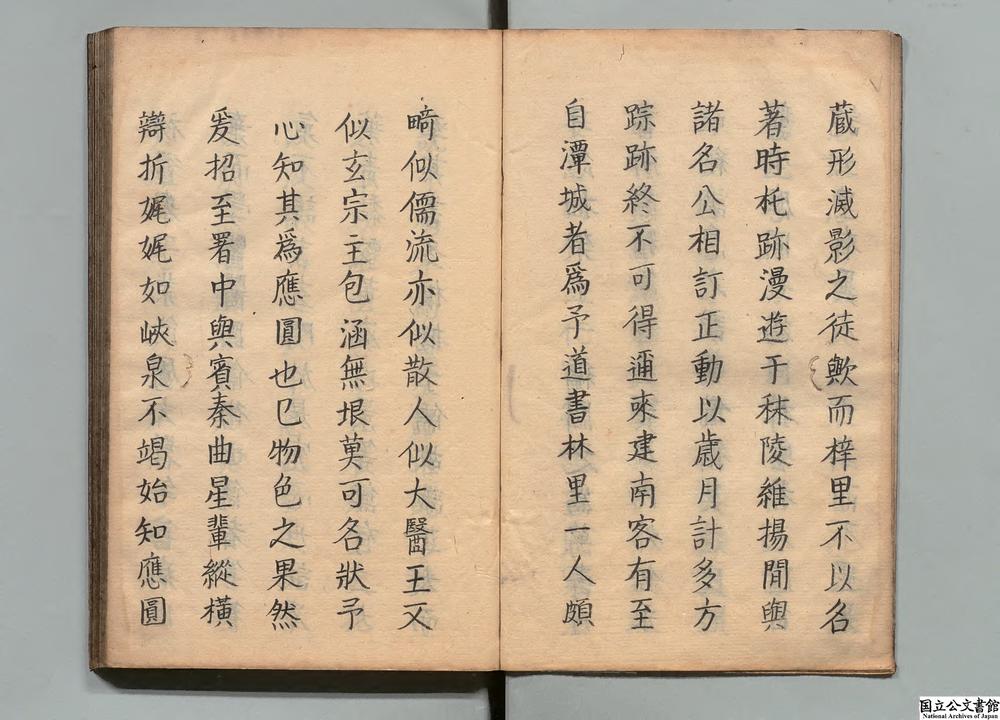 蔵形滅影之徒歟而梓里不以名
著時托跡漫遊于秣陵維揚間與
諸名公相訂正動以歳月計多方
踪跡終不可得邇來建南客有至
自潭城者爲予道書林里一人頗
畸似儒流亦似散人似大醫王又
似玄宗主包涵無垠莫可名狀予
心知其爲應圓也已物色之果然
爰招至署中與賓秦曲星輩縱橫
辯折娓娓如峽泉不竭始知應圓
国立公文書館
National Archives of Japan